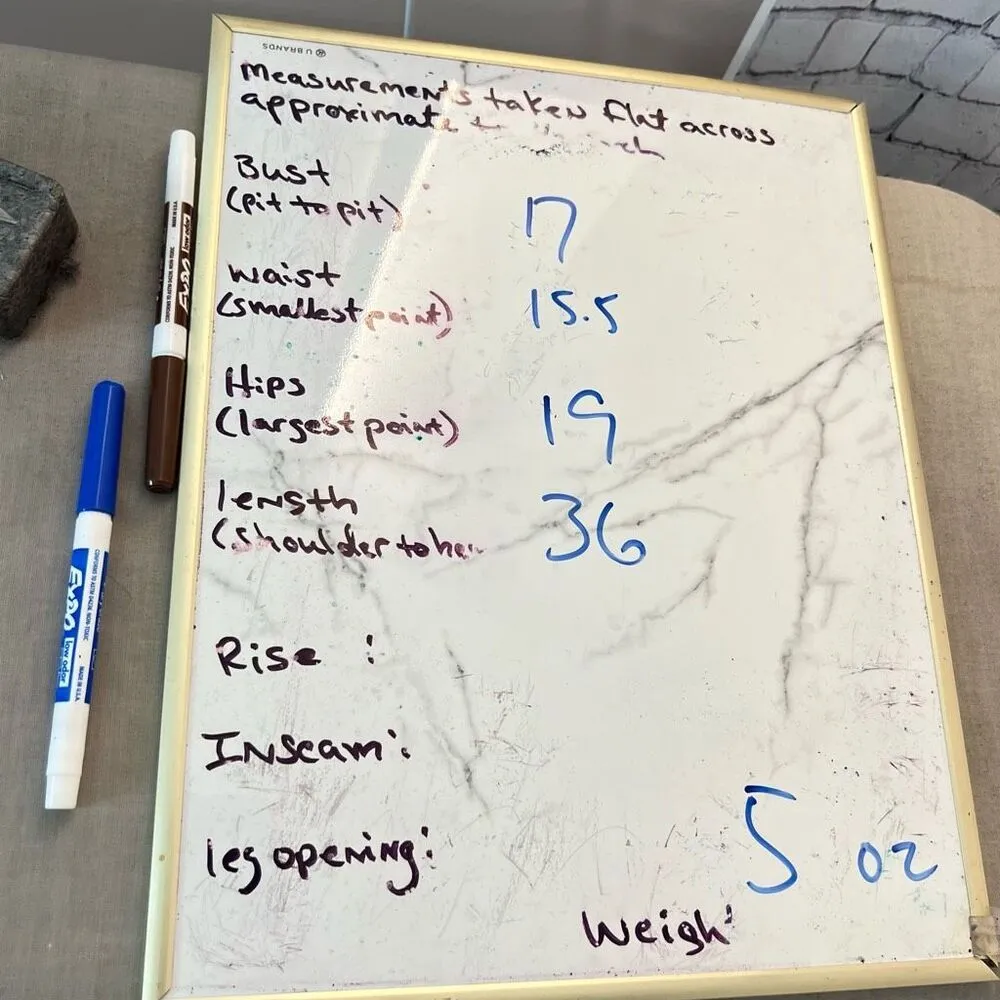 U BRANDS
Measurements taken flat across
approximate
Bust
(pit to pit)
17
waist
(smallest point)
15.5
Hips
(largest point)
19
length
(shoulder to he
36
Rise :
Inseam :
leg opening :
5 oz
Weigh
EXPO
low odor